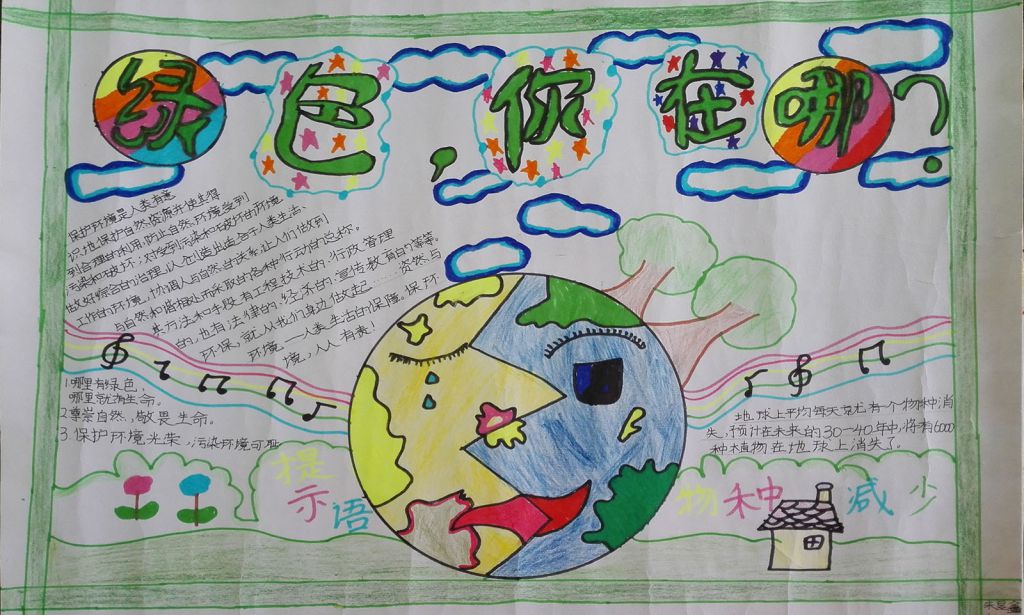 绿色,你在哪?
保护环境是人类有意
识地保护自然资源并使其得
到合理的利用,防止自然环境受到
污染和破坏;对受到污染和破坏的环境
做好综合的治理,以创造出适合于人类生活、
工作的环境,协调人与自然的关系,让人们做到
与自然和谐相处而采取的各种行动的总称。
其方法和手段有工程技术的、行政管理
的,也有法律的、经济的、宣传教育的等等。
环保,就从我们身边做起……资然与
环境,人类生活的保障。保护环
境,人人有责!
1.哪里有绿色,
哪里就有生命。
2.尊崇自然,敬畏生命。
3.保护环境光荣,污染环境可耻
提
示语
地球上平均每天就有一个物种消
失,预计在未来的30—40年中,将有6000
种植物在地球上消失了。
物种减少